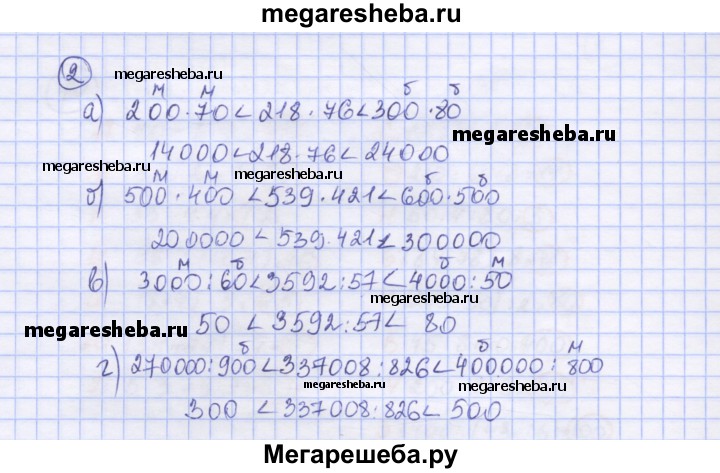 megaresheba.ru
2
megaresheba.ru
м м б б
а) 200·70<218·76<300·80
megaresheba.ru
14000<218·76<24000
megaresheba.ru
м м б б
б) 500·400<539·421<600·500
200000<539·421<300000
м б б м
в) 3000:60<3592:57<4000:50
megaresheba.ru
50<3592:57<80
megaresheba.ru
б б м
г) 270000:900<337008:826<400000:800
megaresheba.ru
megaresheba.ru
300<337008:826<500
Мегарешеба.ру